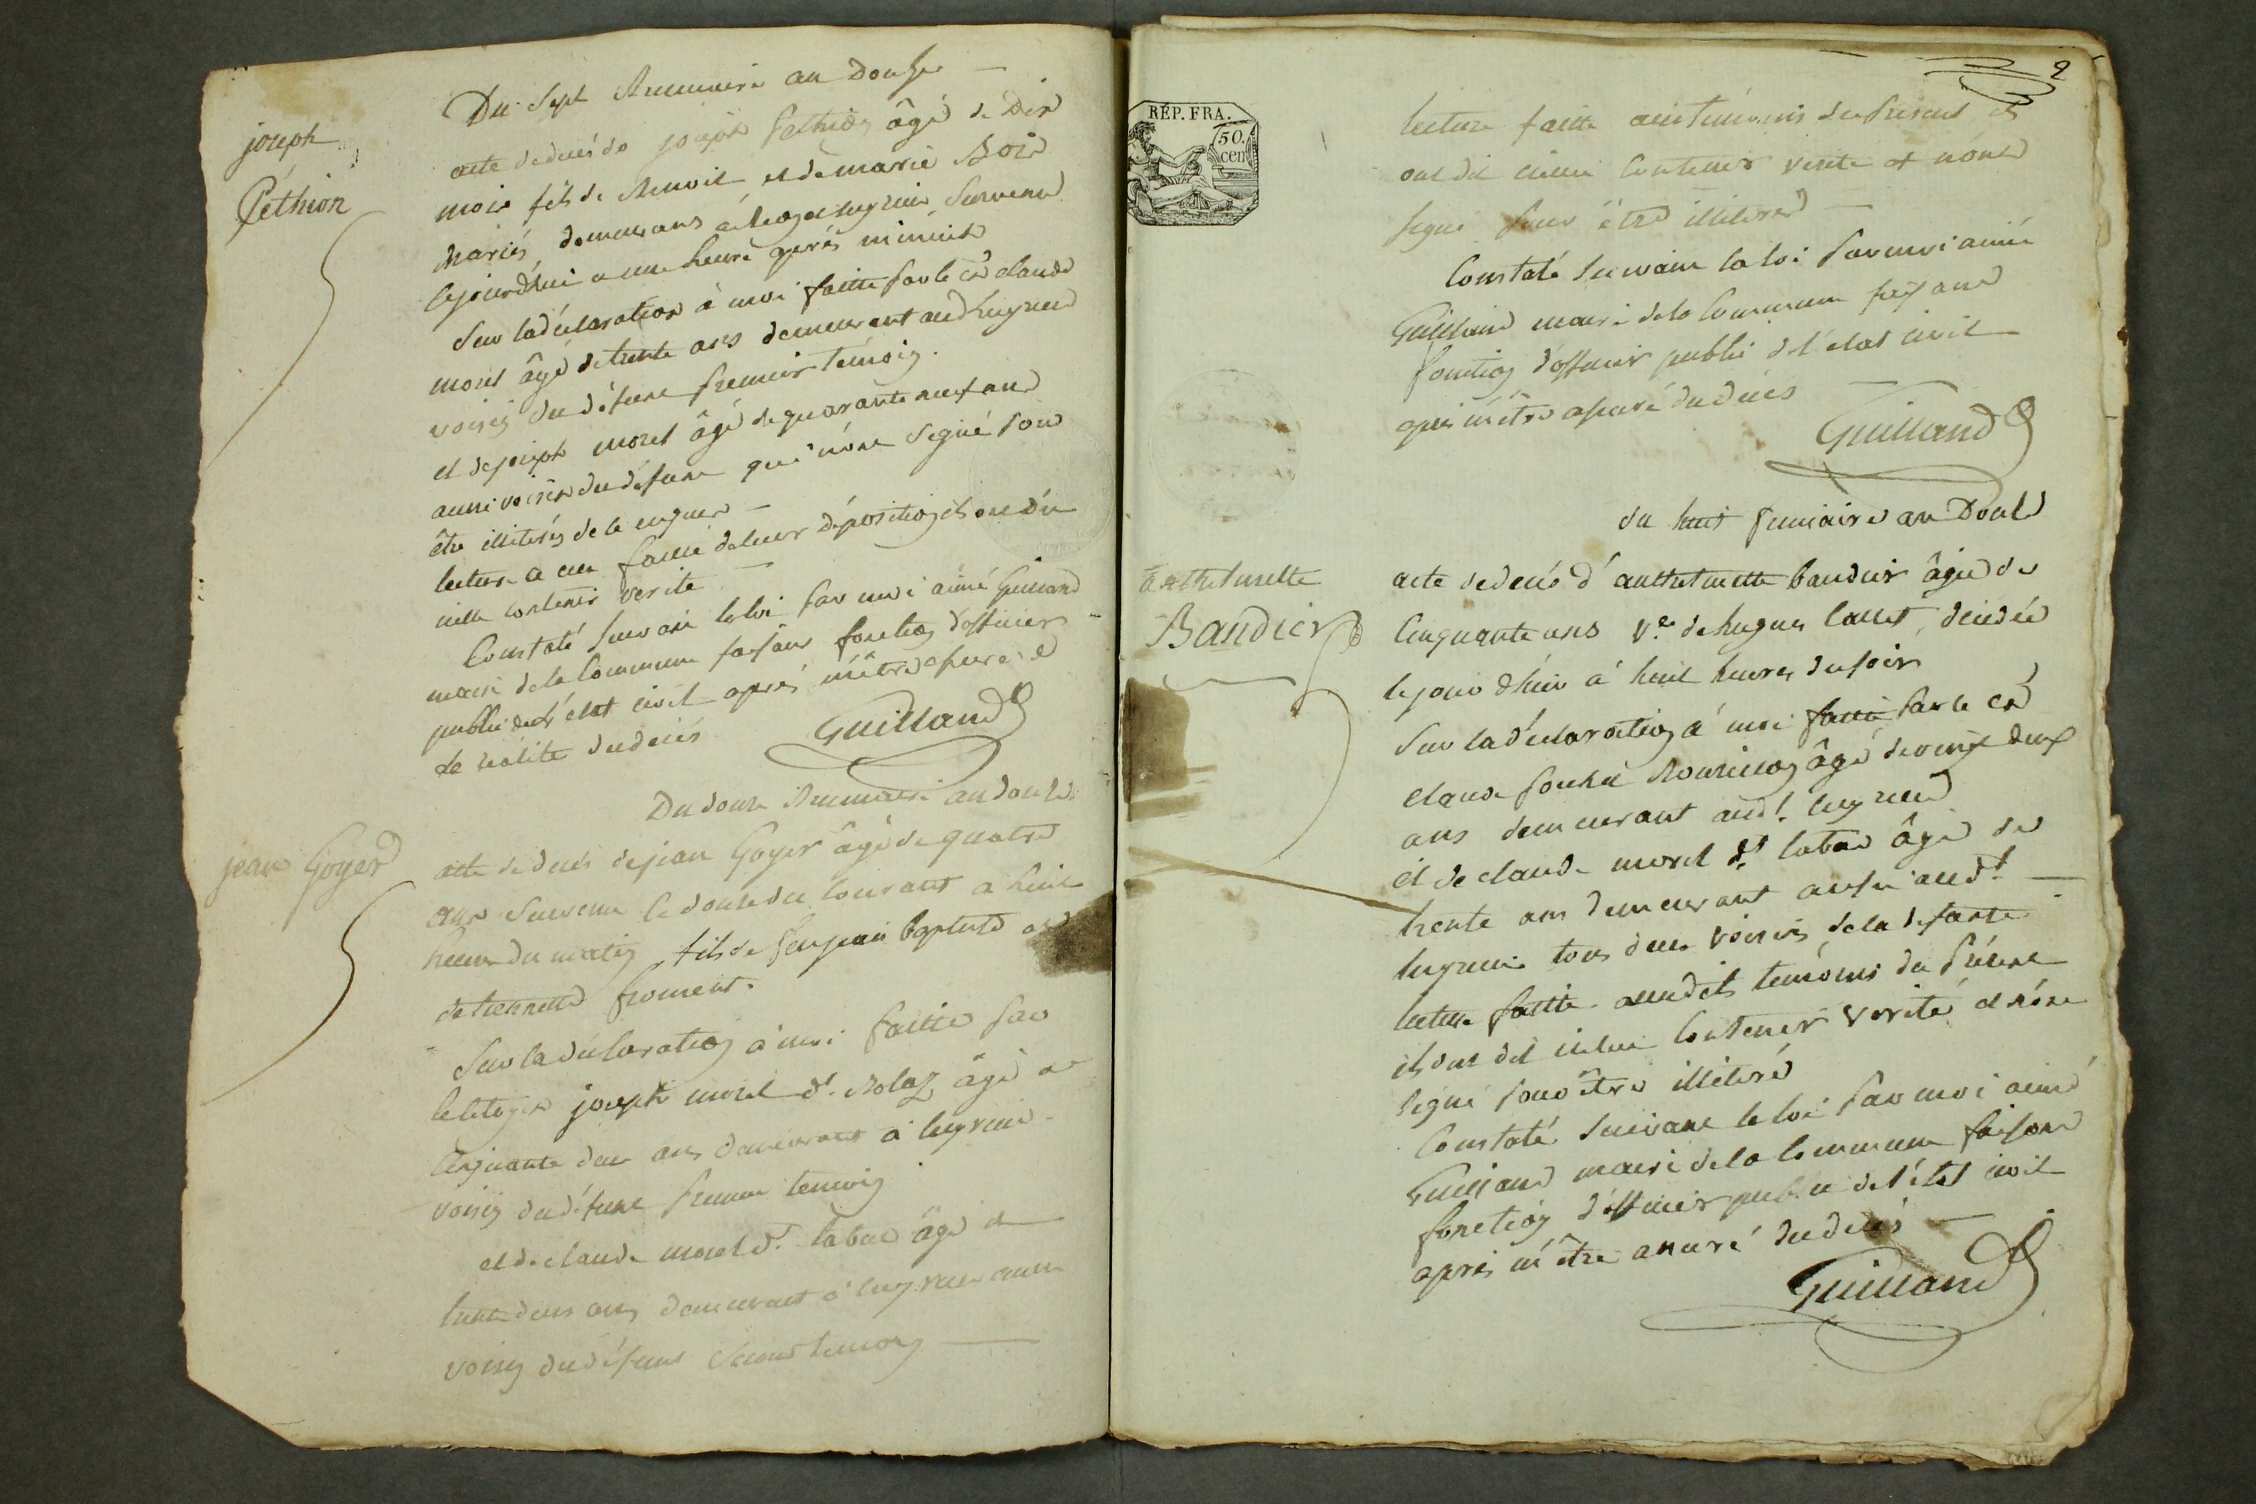 joseph
Péthion
Du Sept Brumaire an Douze
acte de décés de joseph Pethion âgé de Dix
mois fils de Benoit et de marie Bois
mariés, demeurans à Leyrieu Survenu
cejourdhui a une heure aprés minuit
Sur la déclaration à moi faitte par le C.en claude
morel âgé de trente ans demeurant aud. leyrieu
voisin du défunt premier témoin.
et de joseph morel âgé de quarante neuf ans
aussi voisin du défunt qui n'ont Signé pour
être illiterés de le enquis
lecture a eux faitte de leur déposition ils ont dit
icelle contenir verité
Constaté Suivant la loi par moi aimé Guilland
maire de la Commune faisant fonction d'officier
public de l'état civil aprés m'être assuré
de réalité du décés
Guilland
jean Goyer
Du douze Brumaire an douze
acte de décés de jean Goyer âgé de quatre
ans Survenu le douze du Courant a huit
heures du matin fils de feu jean baptiste
et d'etiennette froment.
Sur la déclaration à moi faitte par
le citoyen joseph morel d.t Bolaz âgé de
Cinquante deux ans demeurant à leyrieu
voisin du défunt premier temoin
et de claude morel d.t labae âgé de
trente deux ans demeurant à leyrieu aussi
voisin du défunt Second temoin
2
RÉP. FRA.
50.
cen
lecture faitte aux témoins du présent ils
ont dit icelui Contenir verité et n'ont
Signé pour être illiteré
Constaté Suivant la loi par moi aimé
Guilland maire de la Commune faisant
fonction d'officier public de l'état civil
aprés m'être assuré du décés
Guilland
anthelmette
Baudier
du huit frimaire an Douze
acte de décés d'anthelmette baudier âgée de
Cinquante ans v.e de hugues Collet, décédée
cejourdhui à huit heures du soir
Sur la déclaration à moi faitte par le C.en
claude âgé de vingt deux
ans demeurant aud.t leyrieu
et de claude morel d.t labae âgé de
trente ans demeurant aussi aud.t
leyrieu tous deux voisins de la defunte
lecture faitte auxdits temoins du présent
ils ont dit icelui Contenir verité et n'ont
Signé pour être illiteré
Constaté Suivant la loi par moi aimé
Guilland maire de la Commune faisant
fonction d'officier public de l'état civil
aprés m'être assuré du décés
Guilland